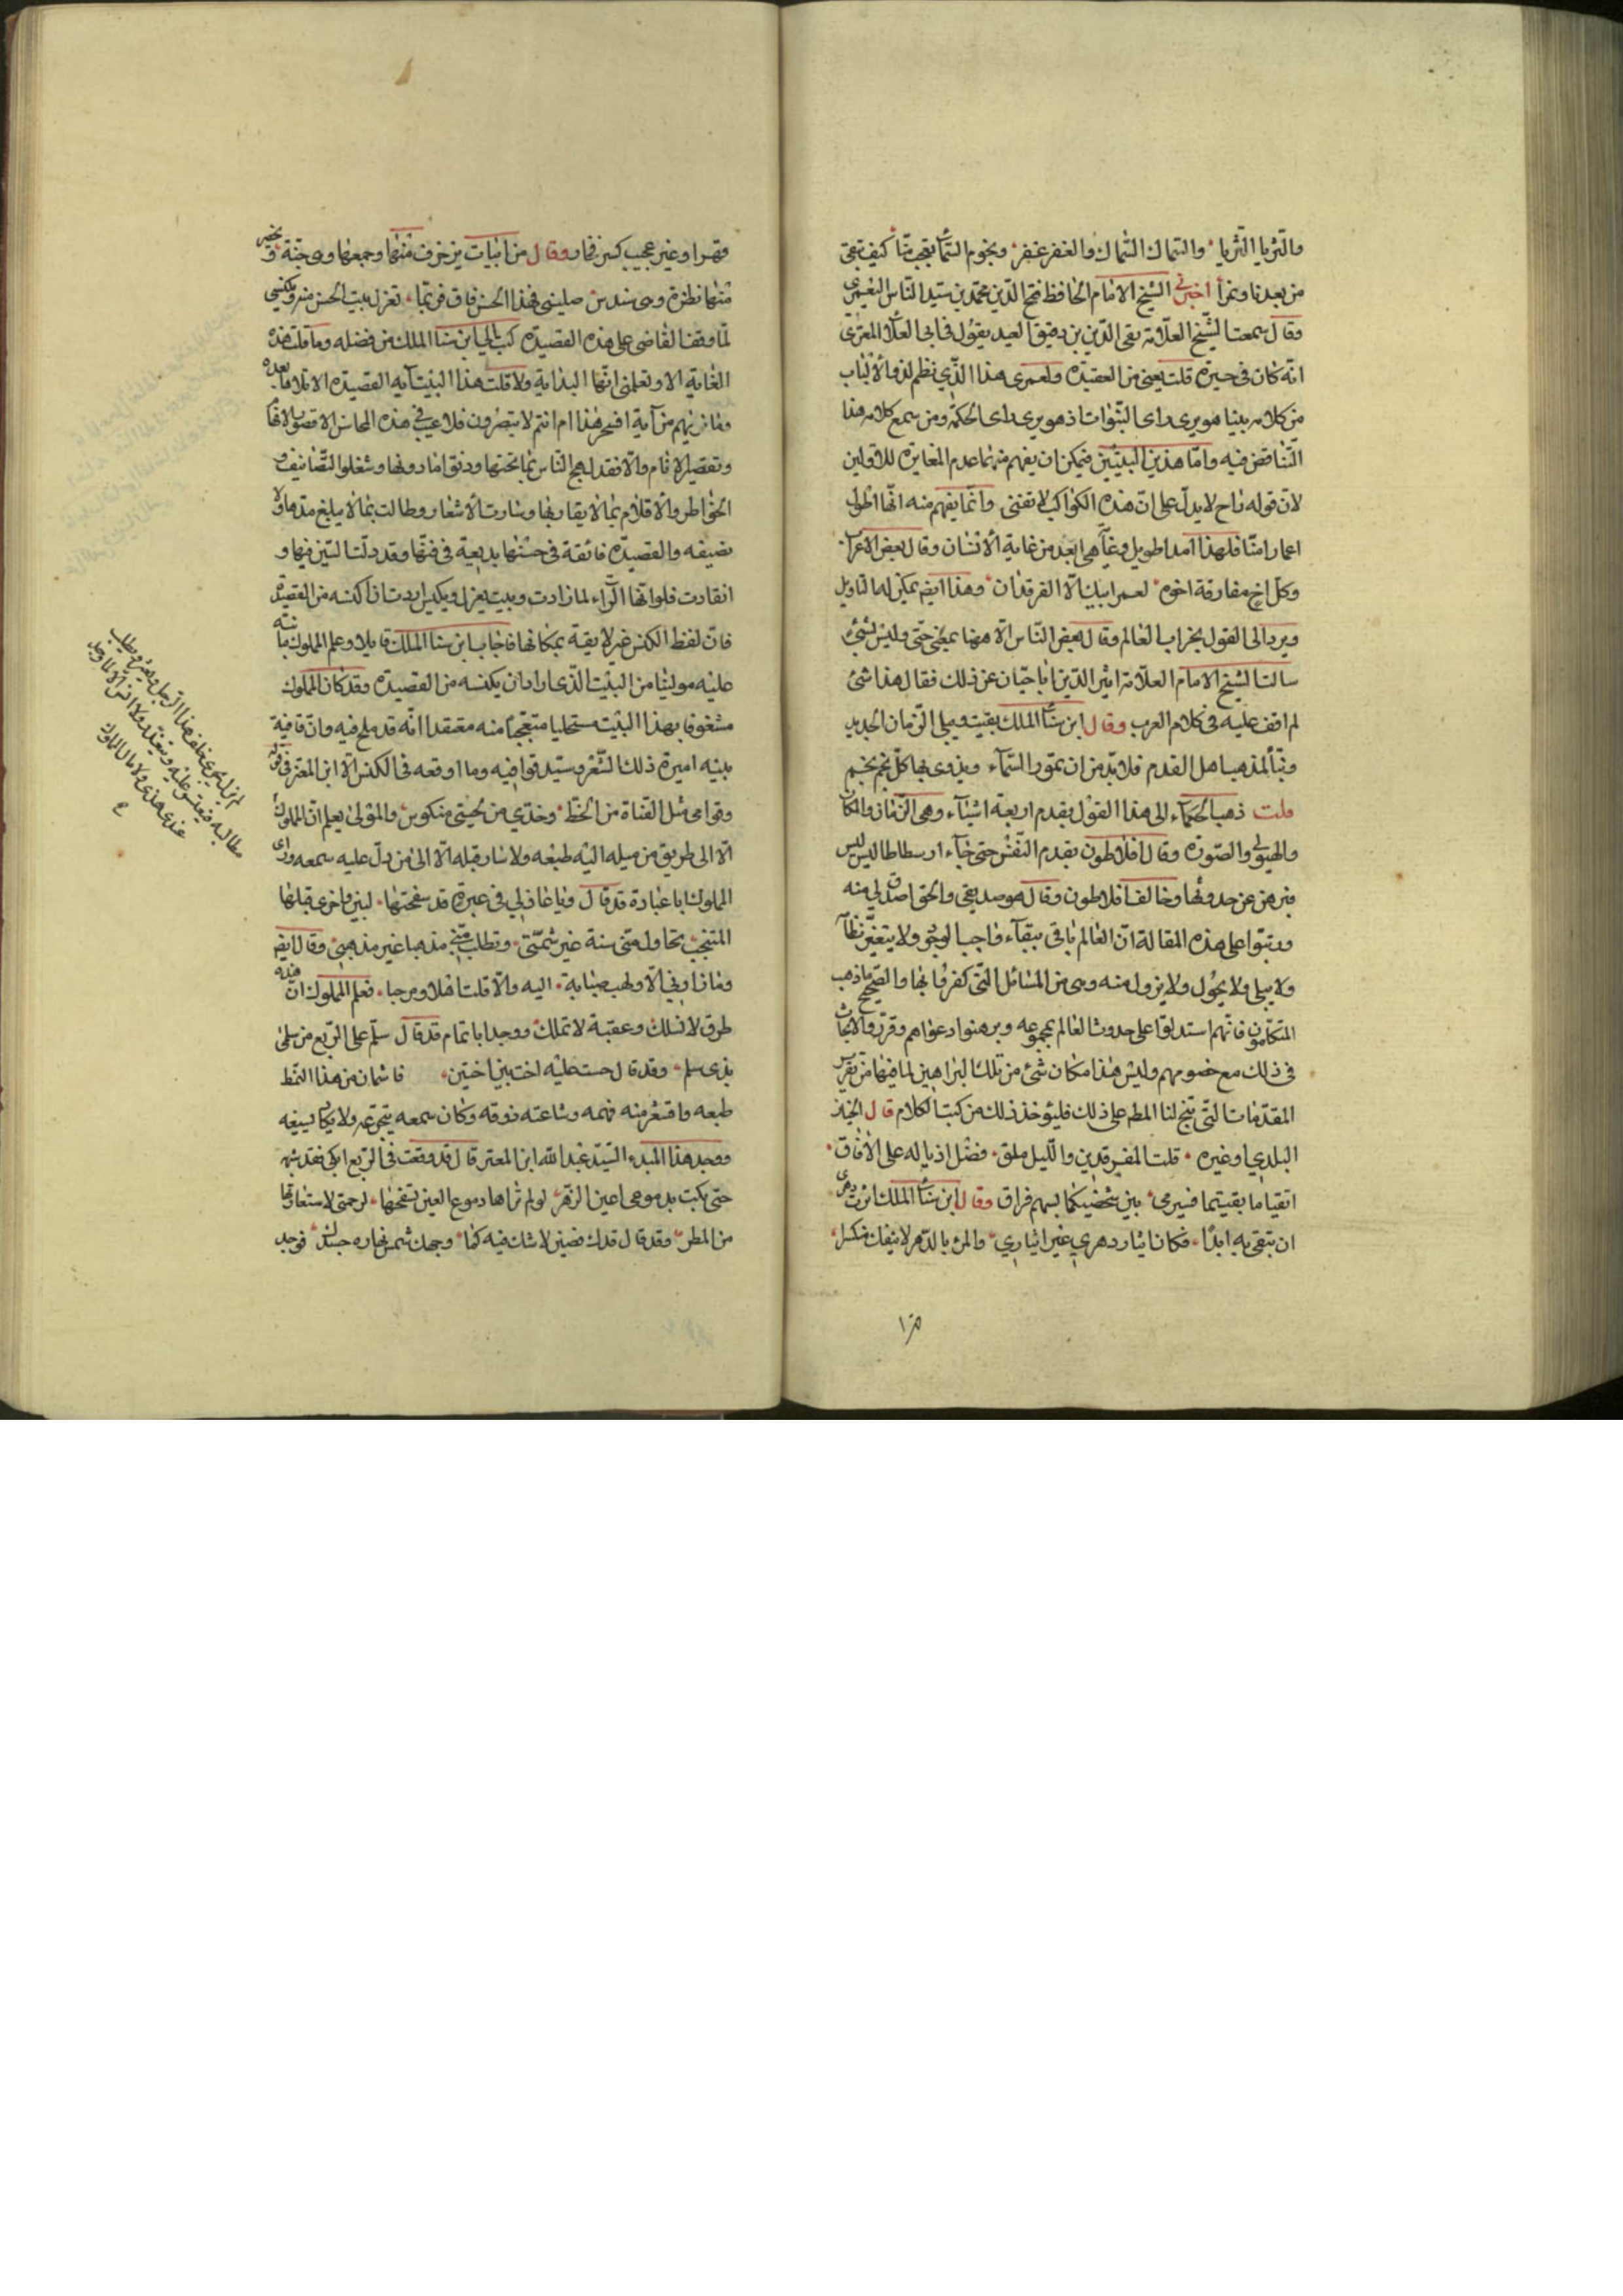 والثريا الثريا والسماك السماك والغفر غفر ونجوم السما تعجب منا كيف تبقى
من بعدنا ونمرا أخبرني الشيخ الامام الحافظ فتح الدين محمد بن سيد الناس اليعمري
وقال سمعت الشيخ العلامة تقي الدين بن دقيق العيد يقول في ابي العلا المعري
انه كان في حيرة قلت يعني من العقيدة ولعمري هذا الذي نظم لذو الالباب
من كلامه بينا هو يرى راى النبوات اذ هو يرى راى الحكمة ومن سمع كلامه هذا
التناقض فيه واما هذين البيتين فيمكن ان يفهم منهما عدم المغايرة للاولين
لان قوله باح لا يدل على ان هذه الكواكب لا تفنى وانما يفهم منه انها اطول
اعمارا منا فلهذا امدا طويل وغاية هي ابعد من غاية الانسان وقال بعض الاعراب
وكل اخ مفارقة اخوه لعمر ابيك الا الفرقدان وهذا ايضا يمكن له التاويل
ويرد الى القول بخراب العالم وقال بعض الناس الا ههنا بمعنى حتى وليس بشئ
سالت الشيخ الامام العلامة اثير الدين ابا حيان عن ذلك فقال هذا شئ
لم اقف عليه في كلام العرب وقال ابن سنا الملك بقيت ويبلى الزمان الجديد
وتبا لمذهب اهل القدم فلا بد من ان تمور السماء ويذوى بها كل نجم نجم
قلت ذهب الحكماء الى هذا القول بقدم اربعة اشياء وهي الزمان والمكان
والهيولى والصورة وقال افلاطون بقدم النفس حتى جاء ارسطاطاليس
فبرهن عن حدوثها وخالف افلاطون وقال هو صديقي والحق اصدق لي منه
ورتبوا على هذه المقالة ان العالم باقى ببقاء واجب الوجود ولا يتغير نظامه
ولا يبلى ولا يحول ولا يزول منه وهي من المسائل التي كفروا بها والصحيح ما ذهب
المتكلمون فانهم استدلوا على حدوث العالم بمجموعه وبرهنوا دعواهم وقرروا الابحاث
في ذلك مع خصومهم وليس هذا مكان شئ من تلك البراهين لما فيها من تقرير
المقدمات التي تنتج لنا المط على ذلك فليؤخذ ذلك من كتب الكلام قال الخباز
البلدي او غيره قلت للفرقدين والليل ملق فضل اذياله على الافاق
ابقيا ما بقيتما فسيرمى بين شخصيكما بسهم فراق وقال ابن سنا الملك اثرت دهرى
ان تبقى به ابدا فكان ايثار دهري غير ايثاري والمرء بالدهر لا ينفك منكسرا
١٣
وقهرا وغير عجيب كسر فخار وقال من ابيات يزخرف منها وجمعها وهي جنة وتحضر
منها نظرة وهي سندس صليني فهذا الحسن فاق فربما تعزل بيت الحسن منه ويكنس
لما وقف القاضي على هذه القصيدة كتب الى ابن سنا الملك من فضله وما قلت هذه
الغاية الا وتعلمني انها البداية ولا قلت هذا البيت آية القصيدة الا تلا ما بعده
وما نريهم من آية افسحر هذا ام انتم لا تبصرون فلا عيب في هذه المحاسن الا قصور الافهام
وتقصير الانام والا فقد لهج الناس بما تحتها ودونوا ما دونها وشغلوا التصانيف و
الخواطر والاقلام بما لا يقاربها وسارت الاشعار وطالت بما لا يبلغ مدها ولا
نصيفه والقصيدة فائقة في حسنها بديعة في فنها وقد ذلت السين فيها و
انقادت فلو انها الراء لما زادت وبيت يعزل ويكنس اردت ان اكنسه من القصيدة
فان لفظ الكنس غير لايقة بمكانها فاجاب ابن سنا الملك قايلا وعلم المملوك ما نبه
عليه مولانا من البيت الذي اراد ان يكنسه من القصيدة وقد كان المملوك
مشغوفا بهذا البيت مستحليا متعجبا منه معتقدا انه قد ملح فيه وان قافية
بيته اميرة ذلك الشعر وسيد قوافيه وما اوقعه في الكنس الا ابن المعتز في قوله
وقوامي مثل القناة من الخط وخدي من لحيتي مكنوس والمولى يعلم ان المملوك
الا الى طريق من ميله اليه طبعه ولا سار قبله الا الى من دل عليه سمعه وراى
المملوك ابا عبادة قد قال ويا عاذلي في عبرة قد سفحتها لبين واخرى قبلها
المتجنب تحاول مني سنة غير شمتي وتطلب مني مذهبا غير مذهبي وقال ايضا
وما زارني الا ولهت صبابة اليه والا قلت اهلا ومرحبا فعلم المملوك ان هذه
طرق لا تسلك وعقبة لا تملك ووجد ابا تمام قد قال سلم على الربع من سلمى
بذي سلم وقد قال خشنت عليه اخت بني اخشين فاشمان من هذا النمط
طبعه واقشعر منه فهمه وشاعته ذوقه وكان سمعه يتجرعه ولا يكاد يسيغه
ووجد هذا المبدء السيد عبد الله ابن المعتز قال قد وقفت في الربع ابكي فقد شبه
حتى بكت بدموعي اعين الزهر لو لم تراها دموع العين تسفحها لرحمتي لاستعارتها
من المطر وقد قال قدك غصن لا شك فيه كما وجهك شمس نهاره جسدك فوجد
لم يزل يجري خلف هذا الرجل ويتعثر ويطلب
مطالبه فيعسر عليه ويتعذر ولا انس الا لما وجد
عندي هذي ولا مال المملوك